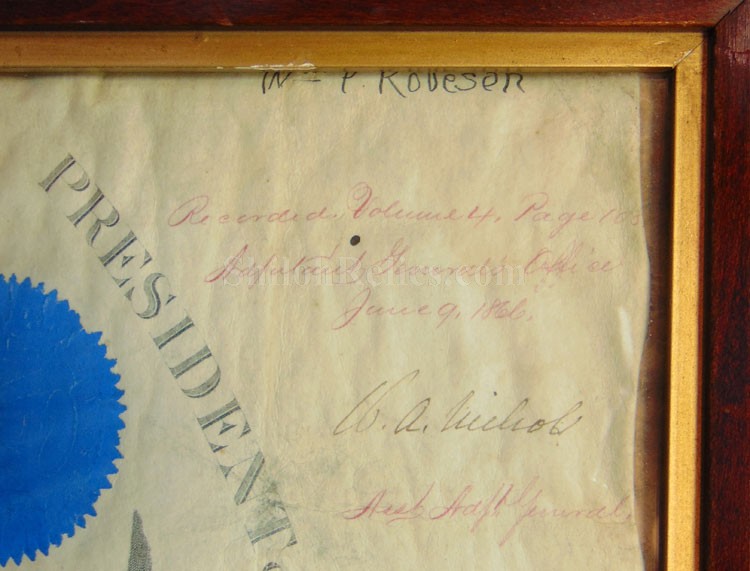 Wm P. Kobesen
PRESIDENT
Recorded. Volume 4. Page
Adjutant General's Office
June 9. 1866.
W. A. Nichols
Asst. Adjt. General.